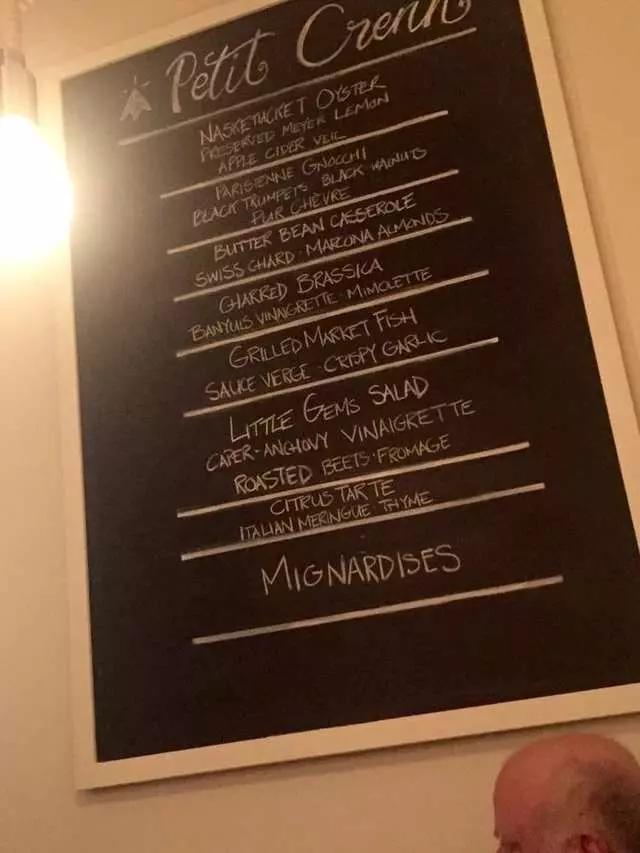 Petit Crenn
NASKETUCKET OYSTER
PRESERVED MEYER LEMON
APPLE CIDER VEIL
PARISIENNE GNOCCHI
BLACK TRUMPETS BLACK WALNUTS
PUR CHÈVRE
BUTTER BEAN CASSEROLE
SWISS CHARD · MARCONA ALMONDS
CHARRED BRASSICA
BANYULS VINAIGRETTE · MIMOLETTE
GRILLED MARKET FISH
SAUCE VERGE · CRISPY GARLIC
LITTLE GEMS SALAD
CAPER-ANCHOVY VINAIGRETTE
ROASTED BEETS · FROMAGE
CITRUS TARTE
ITALIAN MERINGUE THYME
MIGNARDISES